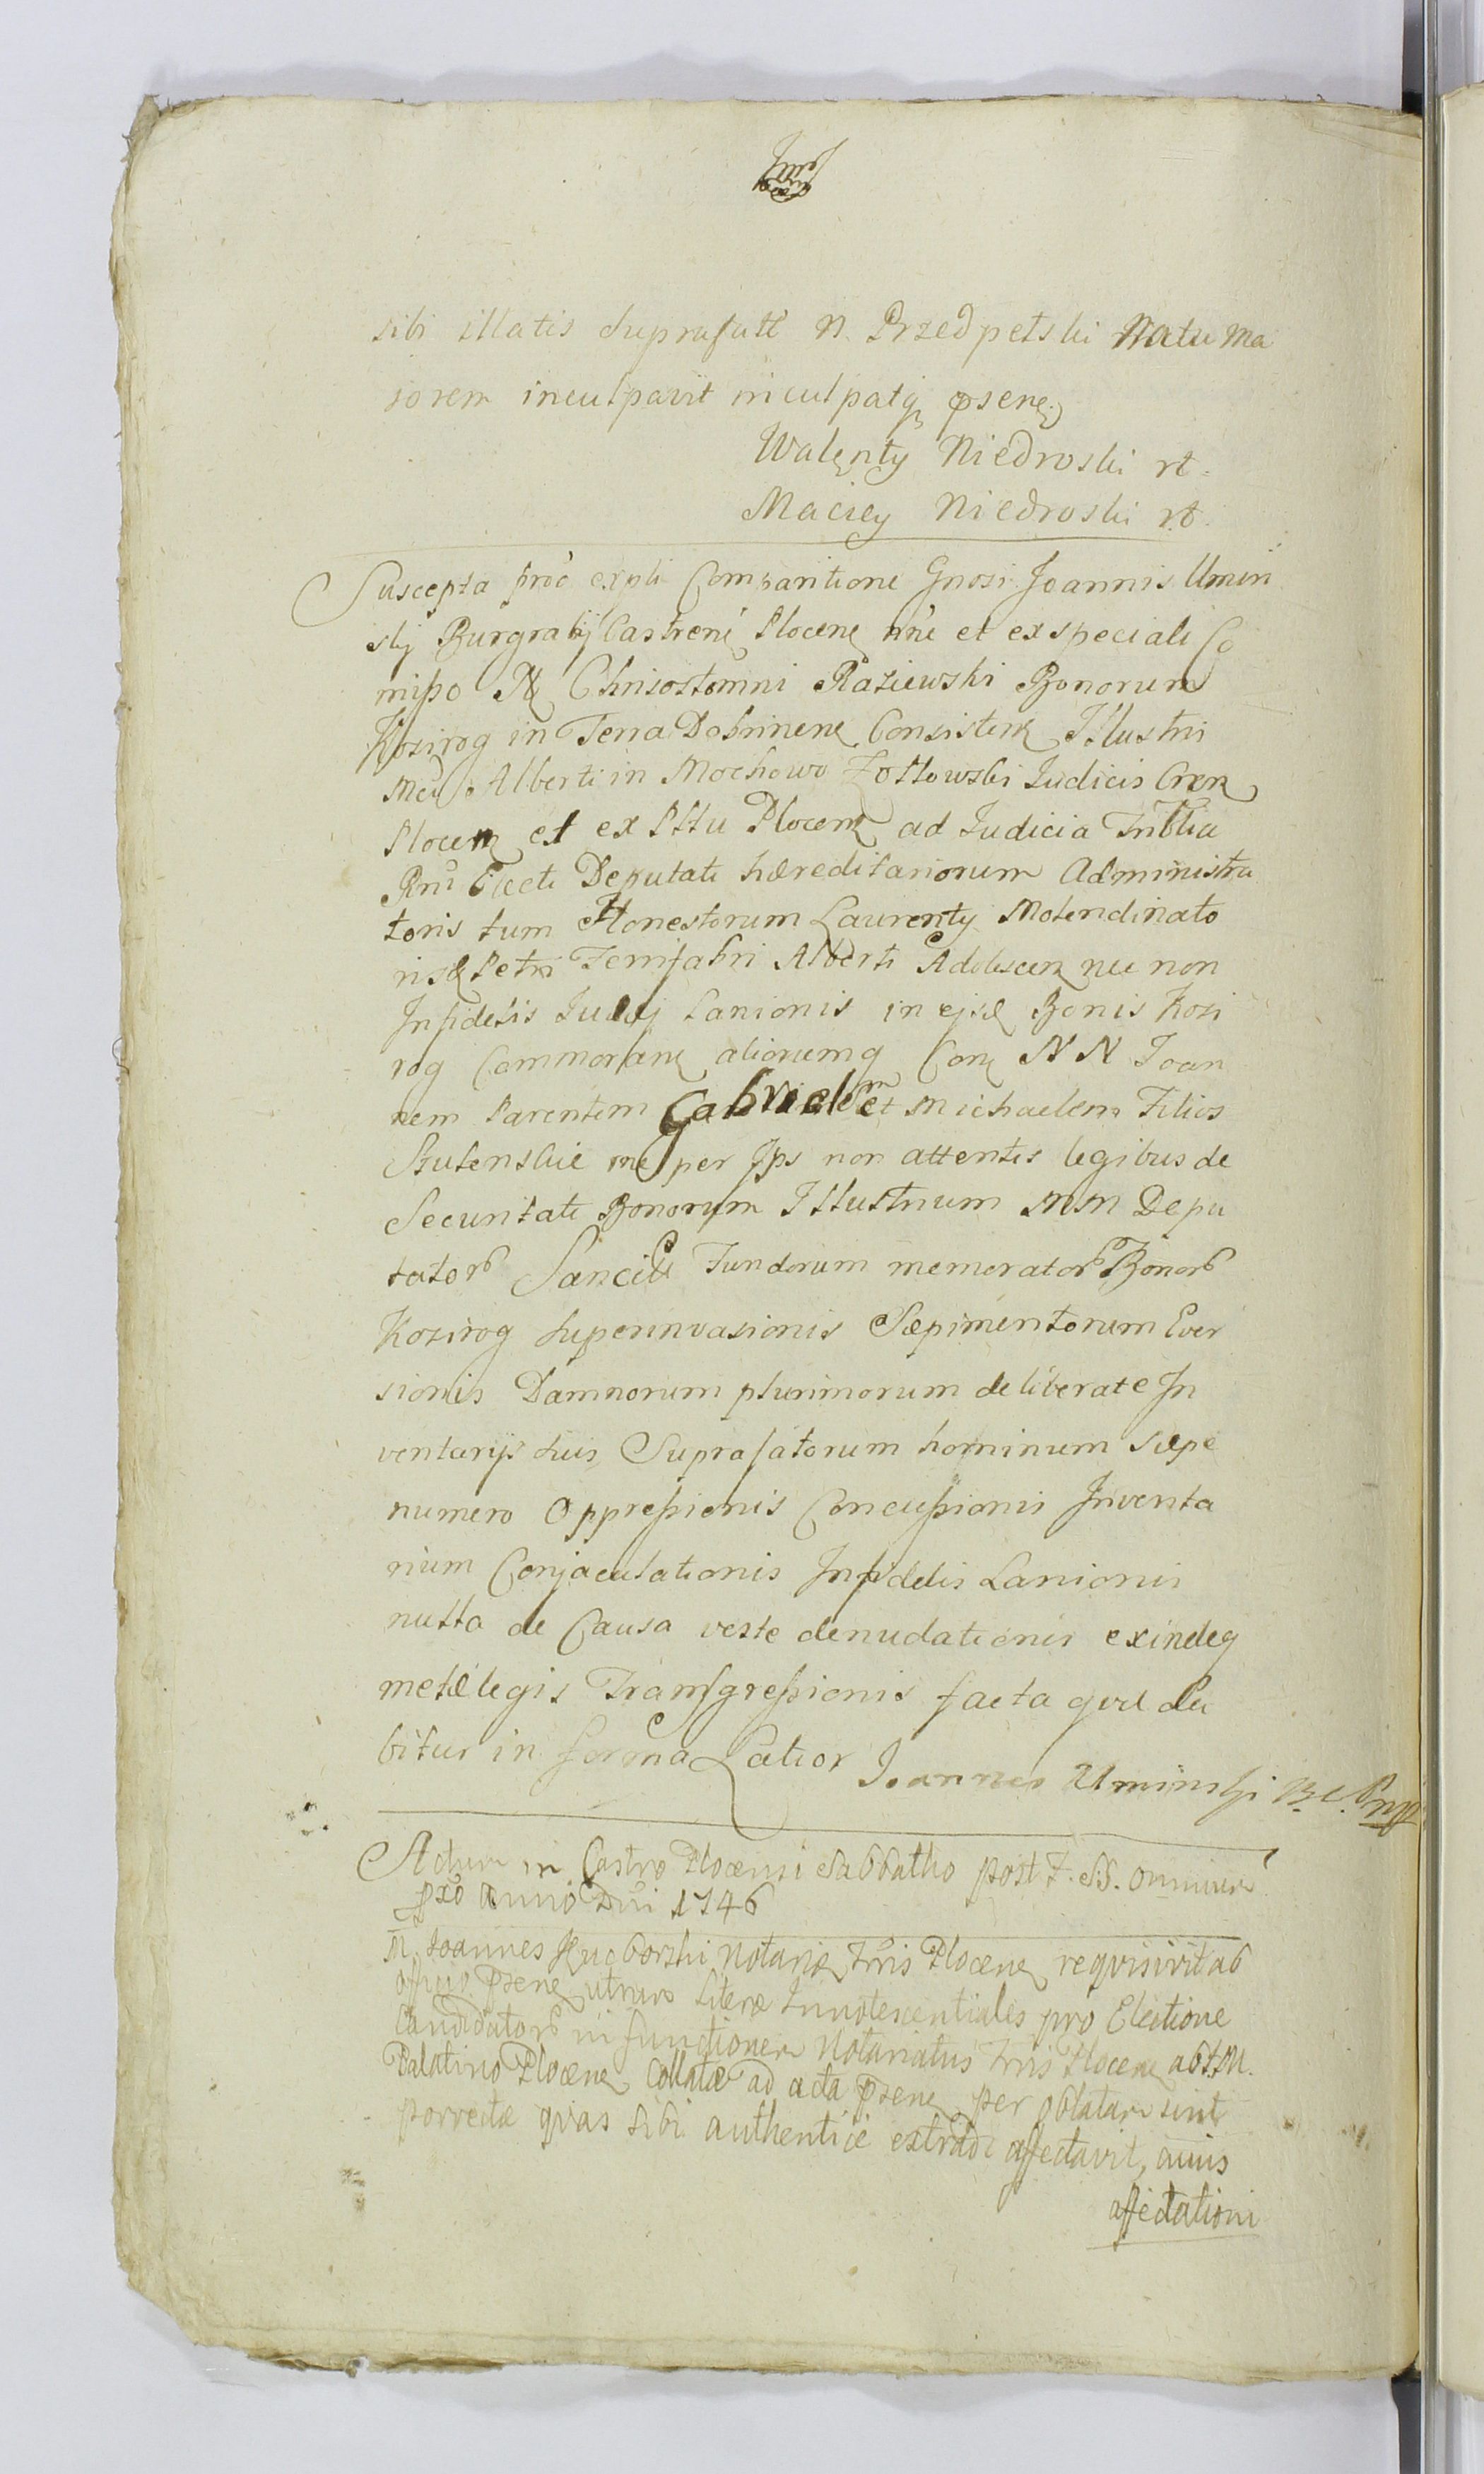 sibi illatis suprafatt N. Przedpetski Natu Ma
jorem inculpavit inculpatq psenę
Walęnty Niedroski rt.
Maciey Niedroski rt.
Suscepta proć expli Comparitione Gnosi Joannis Umin
skj Burgrabij Castrenę Plocenę nne et ex speciali Co
mißo N Chrisostomni Raziewski Bonorum
Kozirog in Terra Dobrinenę Consistenę Illustri
Alberti in Mochowo Zołtowski Judicis
Plocenę et ex Plttu Plocenę ad Judicia Tribtia
Rni Electi Deputati hæreditariorum Administra
toris tum Honestorum Laurenty Molendinato
risq Petri Ferrifabri Alberti Adolescen nec non
Infidelis Judej Lanionis in ejsd Bonis Kozi
rog Commoranę aliorumq Conę N N Joan
nem Parentem Gabrielem et Michaelem Filios
Rutenskie per Ips non attentis legibus de
Securitate Bonorum Illustrium MM Depu
tator Sancitis Fundorum memorator Bonor
Kozirog superinvasionis Sæpimentorum Ever
sionis Damnorum plurimorum deliberate In
ventarijs suis Suprafatorum hominum sæpe
numero Oppreßionis Concußionis Inventa
rium Conjaculationis Infidelis Lanionis
nulla de Causa veste denudationis exindeq
metælegis Transgreßionis facta qvæ da
bitur in forma Latior Joannes Uminski B. C. P. mpp
Actum in Castro Plocensi Sabbatho post F. SS. omnium
pxo Anno Dni 1746
M. Joannes Notariæ Trris Plocenę reqvisivit ab
offuo psenę utrum literæ Innotescentiales pro Electione
Candidator in functionem Notariatus Trris Plocenę ab I. M.
Palatino Plocenę Collatæ ad acta psenę per oblatam sint
porrectæ qvas sibi authenticè extradi affectavit, cuius
affectationi